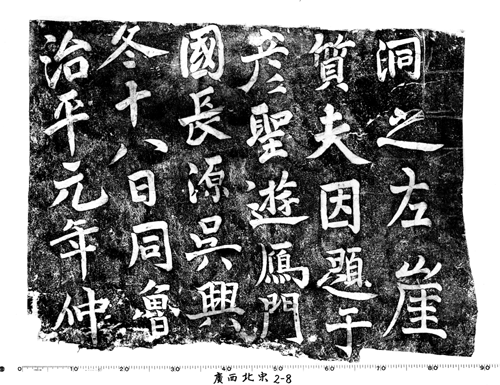 治平元年仲
冬十八日同魯
國長源吳興
彦聖遊鴈門
質夫因題于
洞之左崖
0 10 20 30 40 50 60 70 80 90
廣西北宋 2-8